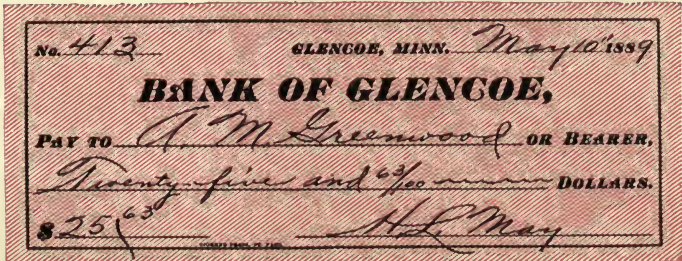 No. 413 GLENCOE, MINN. May 10" 1889
BANK OF GLENCOE,
PAY TO A. M. Greenwood OR BEARER,
Twenty-five and 63/100 DOLLARS.
$25 63 H L May